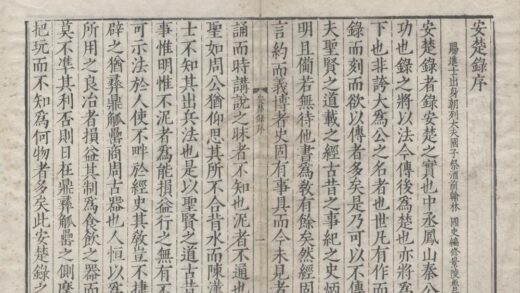 安楚錄序
賜進士出身朝列大夫國子祭酒前翰林 國史編修景陵魯
安楚錄者錄安楚之實也中丞鳳山秦公
功也錄之將以法今傳後為楚也亦將為
下也非誇大為公之名者也世凡有作而
錄而刻而欲以傳者多矣是乃可以不傳
夫聖賢之道載之經古昔之事紀之史炳
明且備若無待他書為敎有餘矣然經固
言約而義博者史固有事具而今未見者
安楚錄序 一
誦而時講說之昧者不知也泥者不通也
聖如周公猶仰思其所不合背水而陳漢
士不知其出兵法也是以聖賢之道古昔
事惟明惟不泥者為能損益行之無有不
可示法於人使不畔於經史其敎豈不捷
辟之猶彝鼎觶罍商周古器也人恒以為
所用之良冶者損益其制為食飲之器而
莫不準其利否則日在鼎彝觶罍之側摩
把玩而不知為何物者多矣此安楚錄之